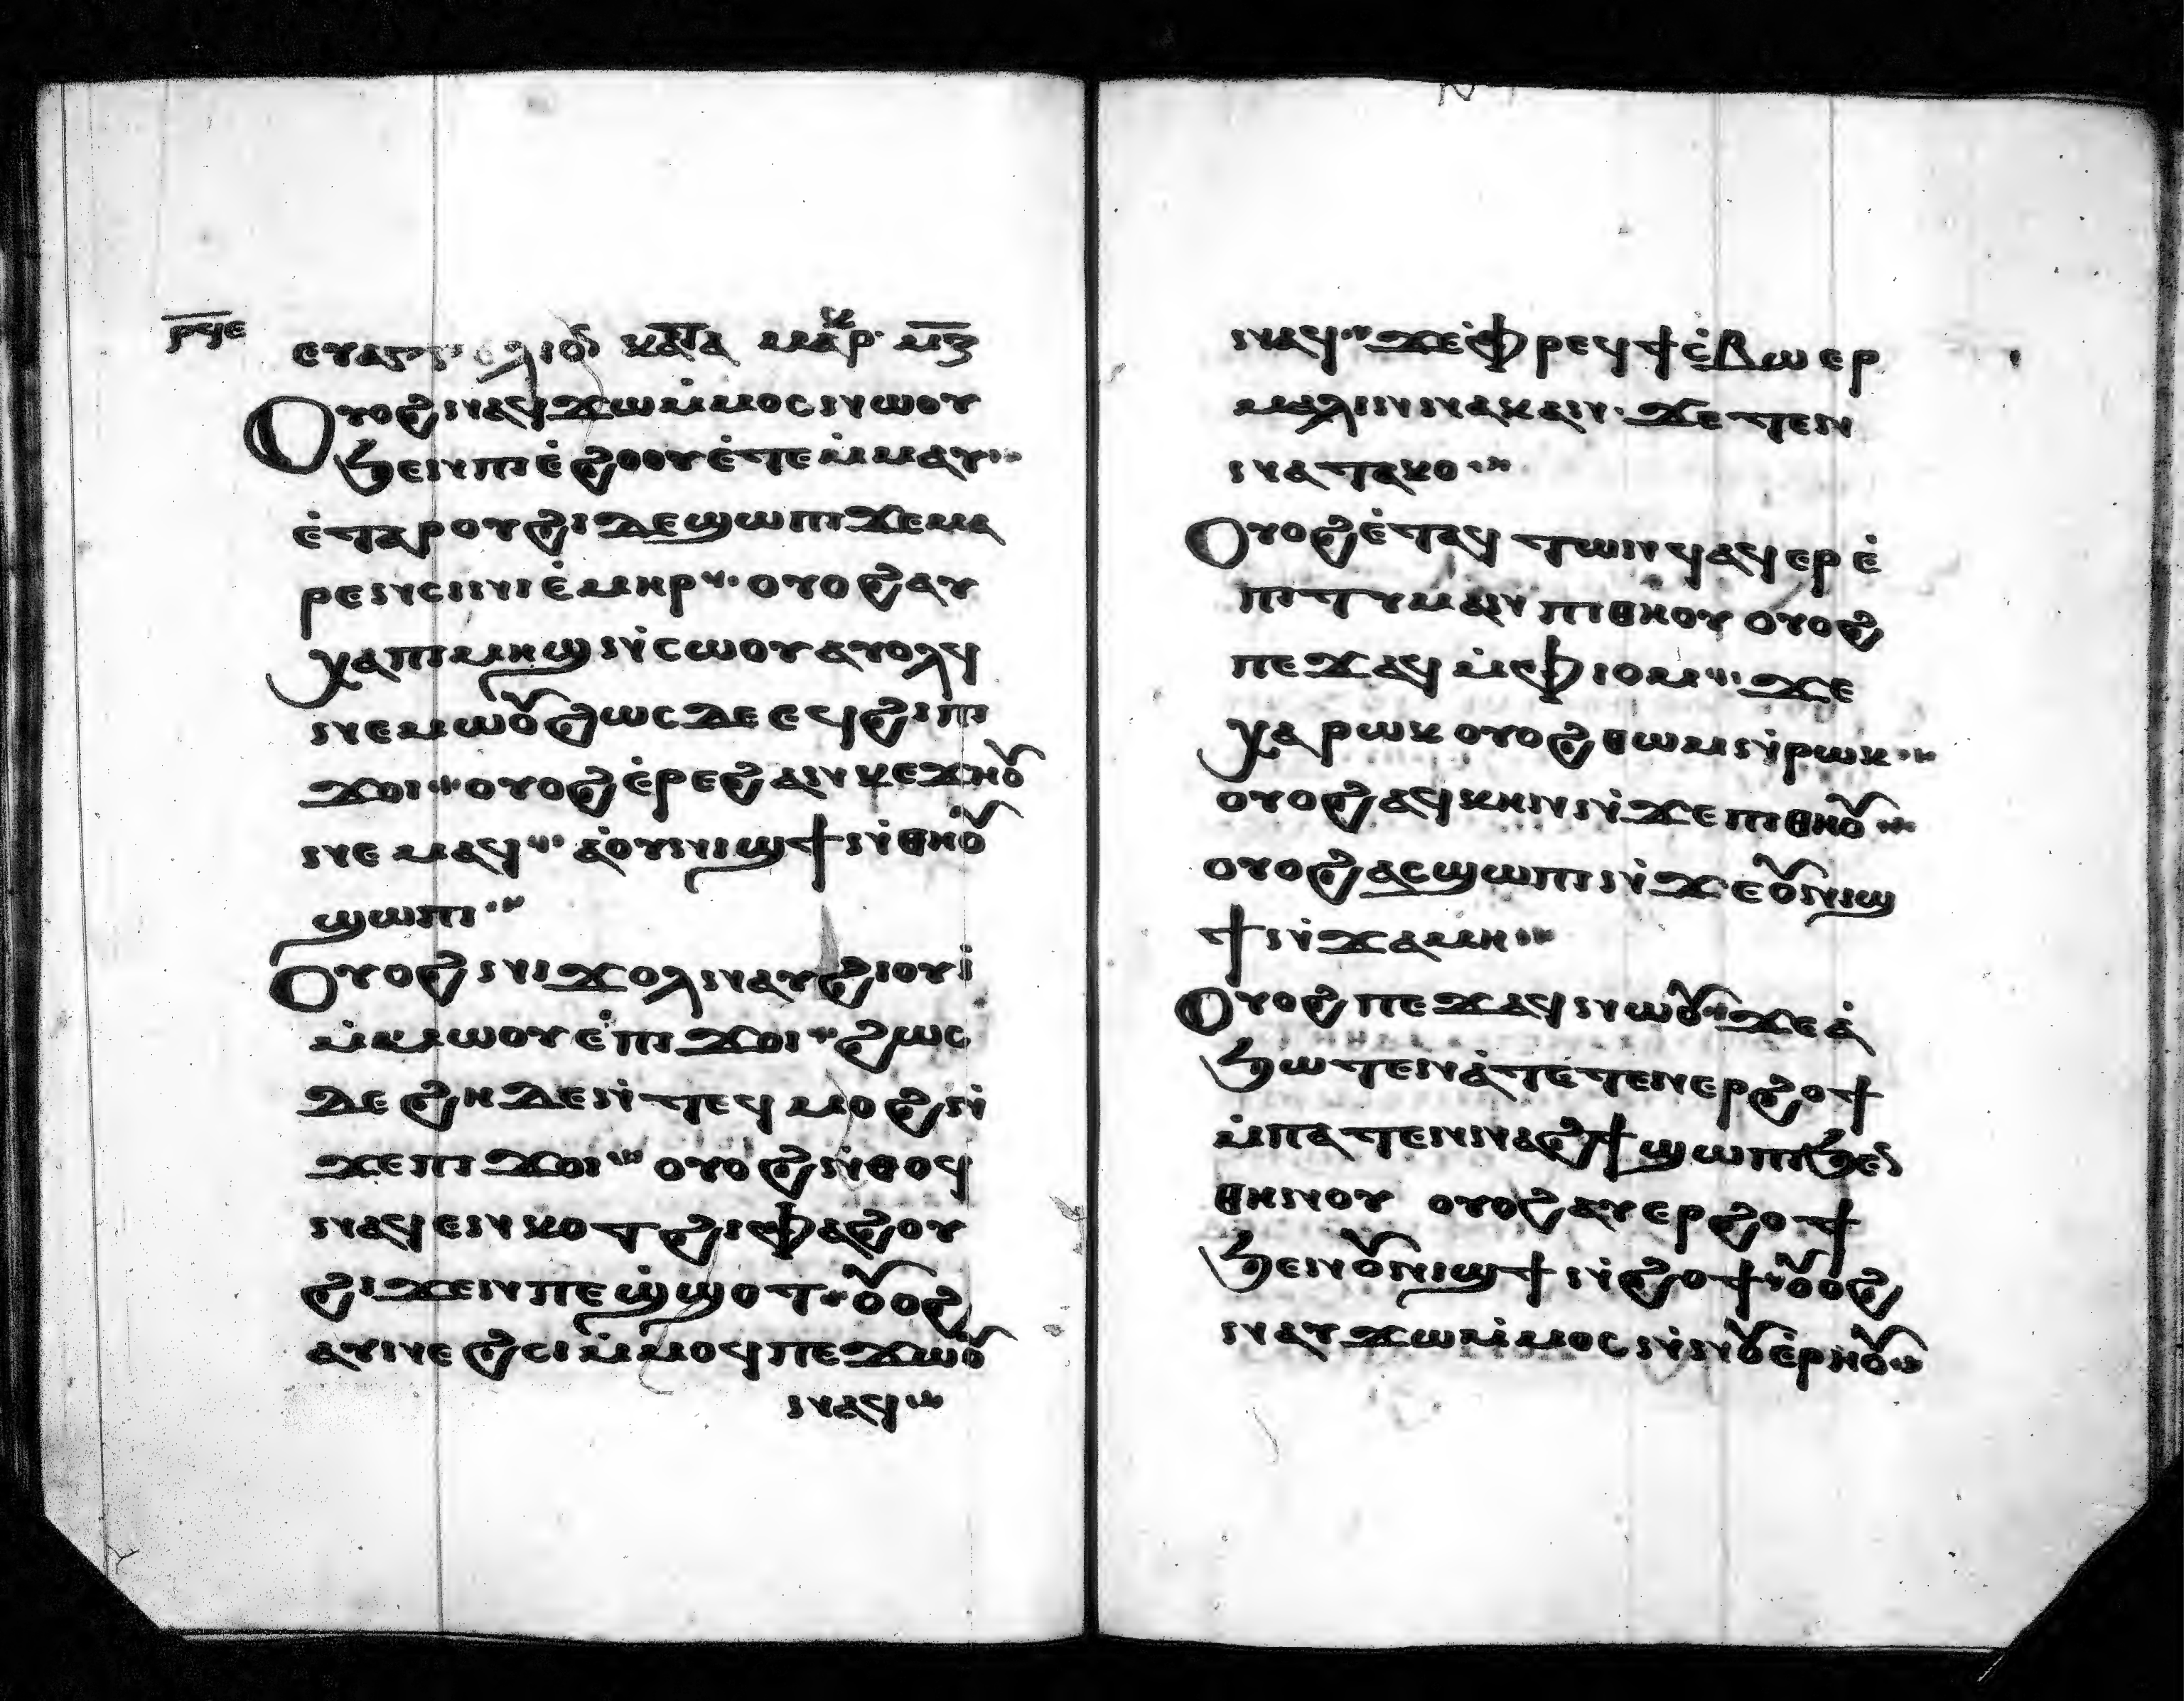 ⲣϥⲉ
ⲉⲩⲁⲅⲅⲉⲗⲓⲟⲛ ⲕⲁⲧⲁ ⲙⲁⲣⲕ ⲙⲍ
Ⲟⲩⲟϩ ⲛⲁϥϫⲱ ⲙ̇ⲙⲟⲥ ⲛⲱⲟⲩ
ϧⲉⲛ ⲡⲓⲉ̇ϩⲟⲟⲩ ⲉ̇ⲧⲉ ⲙ̇ⲙⲁⲩ
ⲉ̇ⲧⲁ ⲣⲟⲩϩⲓ ⲇⲉ ϣⲱⲡⲓ ϫⲉ ⲙⲁ
ⲣⲉⲛⲥⲓⲛⲓ ⲉ̇ⲙⲏⲣ ⲟⲩⲟϩ ⲁⲩ
ⲭⲁ ⲡⲓⲙⲏϣ ⲛ̇ⲥⲱⲟⲩ ⲁⲩⲟⲗϥ
ⲛⲉⲙⲱⲟⲩ ϩⲱⲥ ⲇⲉ ⲉϥϩⲓ ⲡⲓ
ϫⲟⲓ ⲟⲩⲟϩ ⲉ̇ⲣⲉ ϩⲁⲛⲕⲉϫⲏⲟⲩ
ⲛⲉⲙⲁϥ ⲁ̇ⲟⲩⲛⲓϣϯ ⲛ̇ⲑⲏⲟⲩ
ϣⲱⲡⲓ
Ⲟⲩⲟϩ ⲛⲓϫⲟⲗ ⲛⲁⲩϩⲓⲟⲩⲓ
ⲙ̇ⲙⲱⲟⲩ ⲉ̇ⲡⲓϫⲟⲓ ϩⲱⲥ
ⲇⲉ ϩⲏⲇⲉ ⲛ̇ⲧⲉϥⲙⲟϩ ⲛ̇
ϫⲉ ⲡⲓϫⲟⲓ ⲟⲩⲟϩ ⲛ̇ⲑⲟϥ
ⲛⲁϥⲉⲛⲕⲟⲧ ϩⲓ ⲫⲁϩⲟⲩ
ϩⲓϫⲉⲛ ⲡⲉϣ̇ϣⲟⲧ ⲟⲩⲟϩ
ⲁⲩⲛⲉϩⲥⲓ ⲙ̇ⲙⲟϥ ⲡⲉϫⲱⲟⲩ
ⲛⲁϥ
ⲛⲁϥ ϫⲉ ⲫ̇ⲣⲉϥϯⲥ̇ⲃⲱ ⲉⲣ
ⲙⲉⲗⲓⲛ ⲛⲁⲕ ⲁⲛ ϫⲉ ⲧⲉⲛ
ⲛⲁⲧⲁⲕⲟ
Ⲟⲩⲟϩ ⲉ̇ⲧⲁϥⲧⲱⲛϥ ⲁϥⲉⲣⲉ̇
ⲡⲓⲧⲩⲙⲁⲛ ⲡⲓⲑⲏⲟⲩ ⲟⲩⲟϩ
ⲡⲉϫⲁϥ ⲙ̇ⲫⲓⲟⲙ ϫⲉ
ⲭⲁⲣⲱⲕ ⲟⲩⲟϩ ⲑⲱⲙ ⲛ̇ⲣⲱⲕ
ⲟⲩⲟϩ ⲁϥⲕⲏⲛ ⲛ̇ϫⲉ ⲡⲓⲑⲏⲟⲩ
ⲟⲩⲟϩ ⲁⲥϣⲱⲡⲓ ⲛ̇ϫⲉ ⲟⲩⲛⲓϣ
ϯ ⲛ̇ϫⲁⲙⲏ
Ⲟⲩⲟϩ ⲡⲉϫⲁϥ ⲛⲱⲟⲩ ϫⲉ ⲁ̇
ϧⲱⲧⲉⲛ ⲁ̇ⲧⲉⲧⲉⲛⲉⲣϩⲟϯ
ⲙ̇ⲡⲁⲧⲉ ⲛⲛⲁϩϯ ϣⲱⲡⲓ ϧⲉⲛ
ⲑⲏⲛⲟⲩ ⲟⲩⲟϩ ⲁⲩⲉⲣϩⲟϯ
ϧⲉⲛ ⲟⲩⲛⲓϣϯ ⲛ̇ϩⲟϯ ⲟⲩⲟϩ
ⲛⲁⲩϫⲱ ⲙ̇ⲙⲟⲥ ⲛ̇ⲛⲟⲩⲉ̇ⲣⲏⲟⲩ